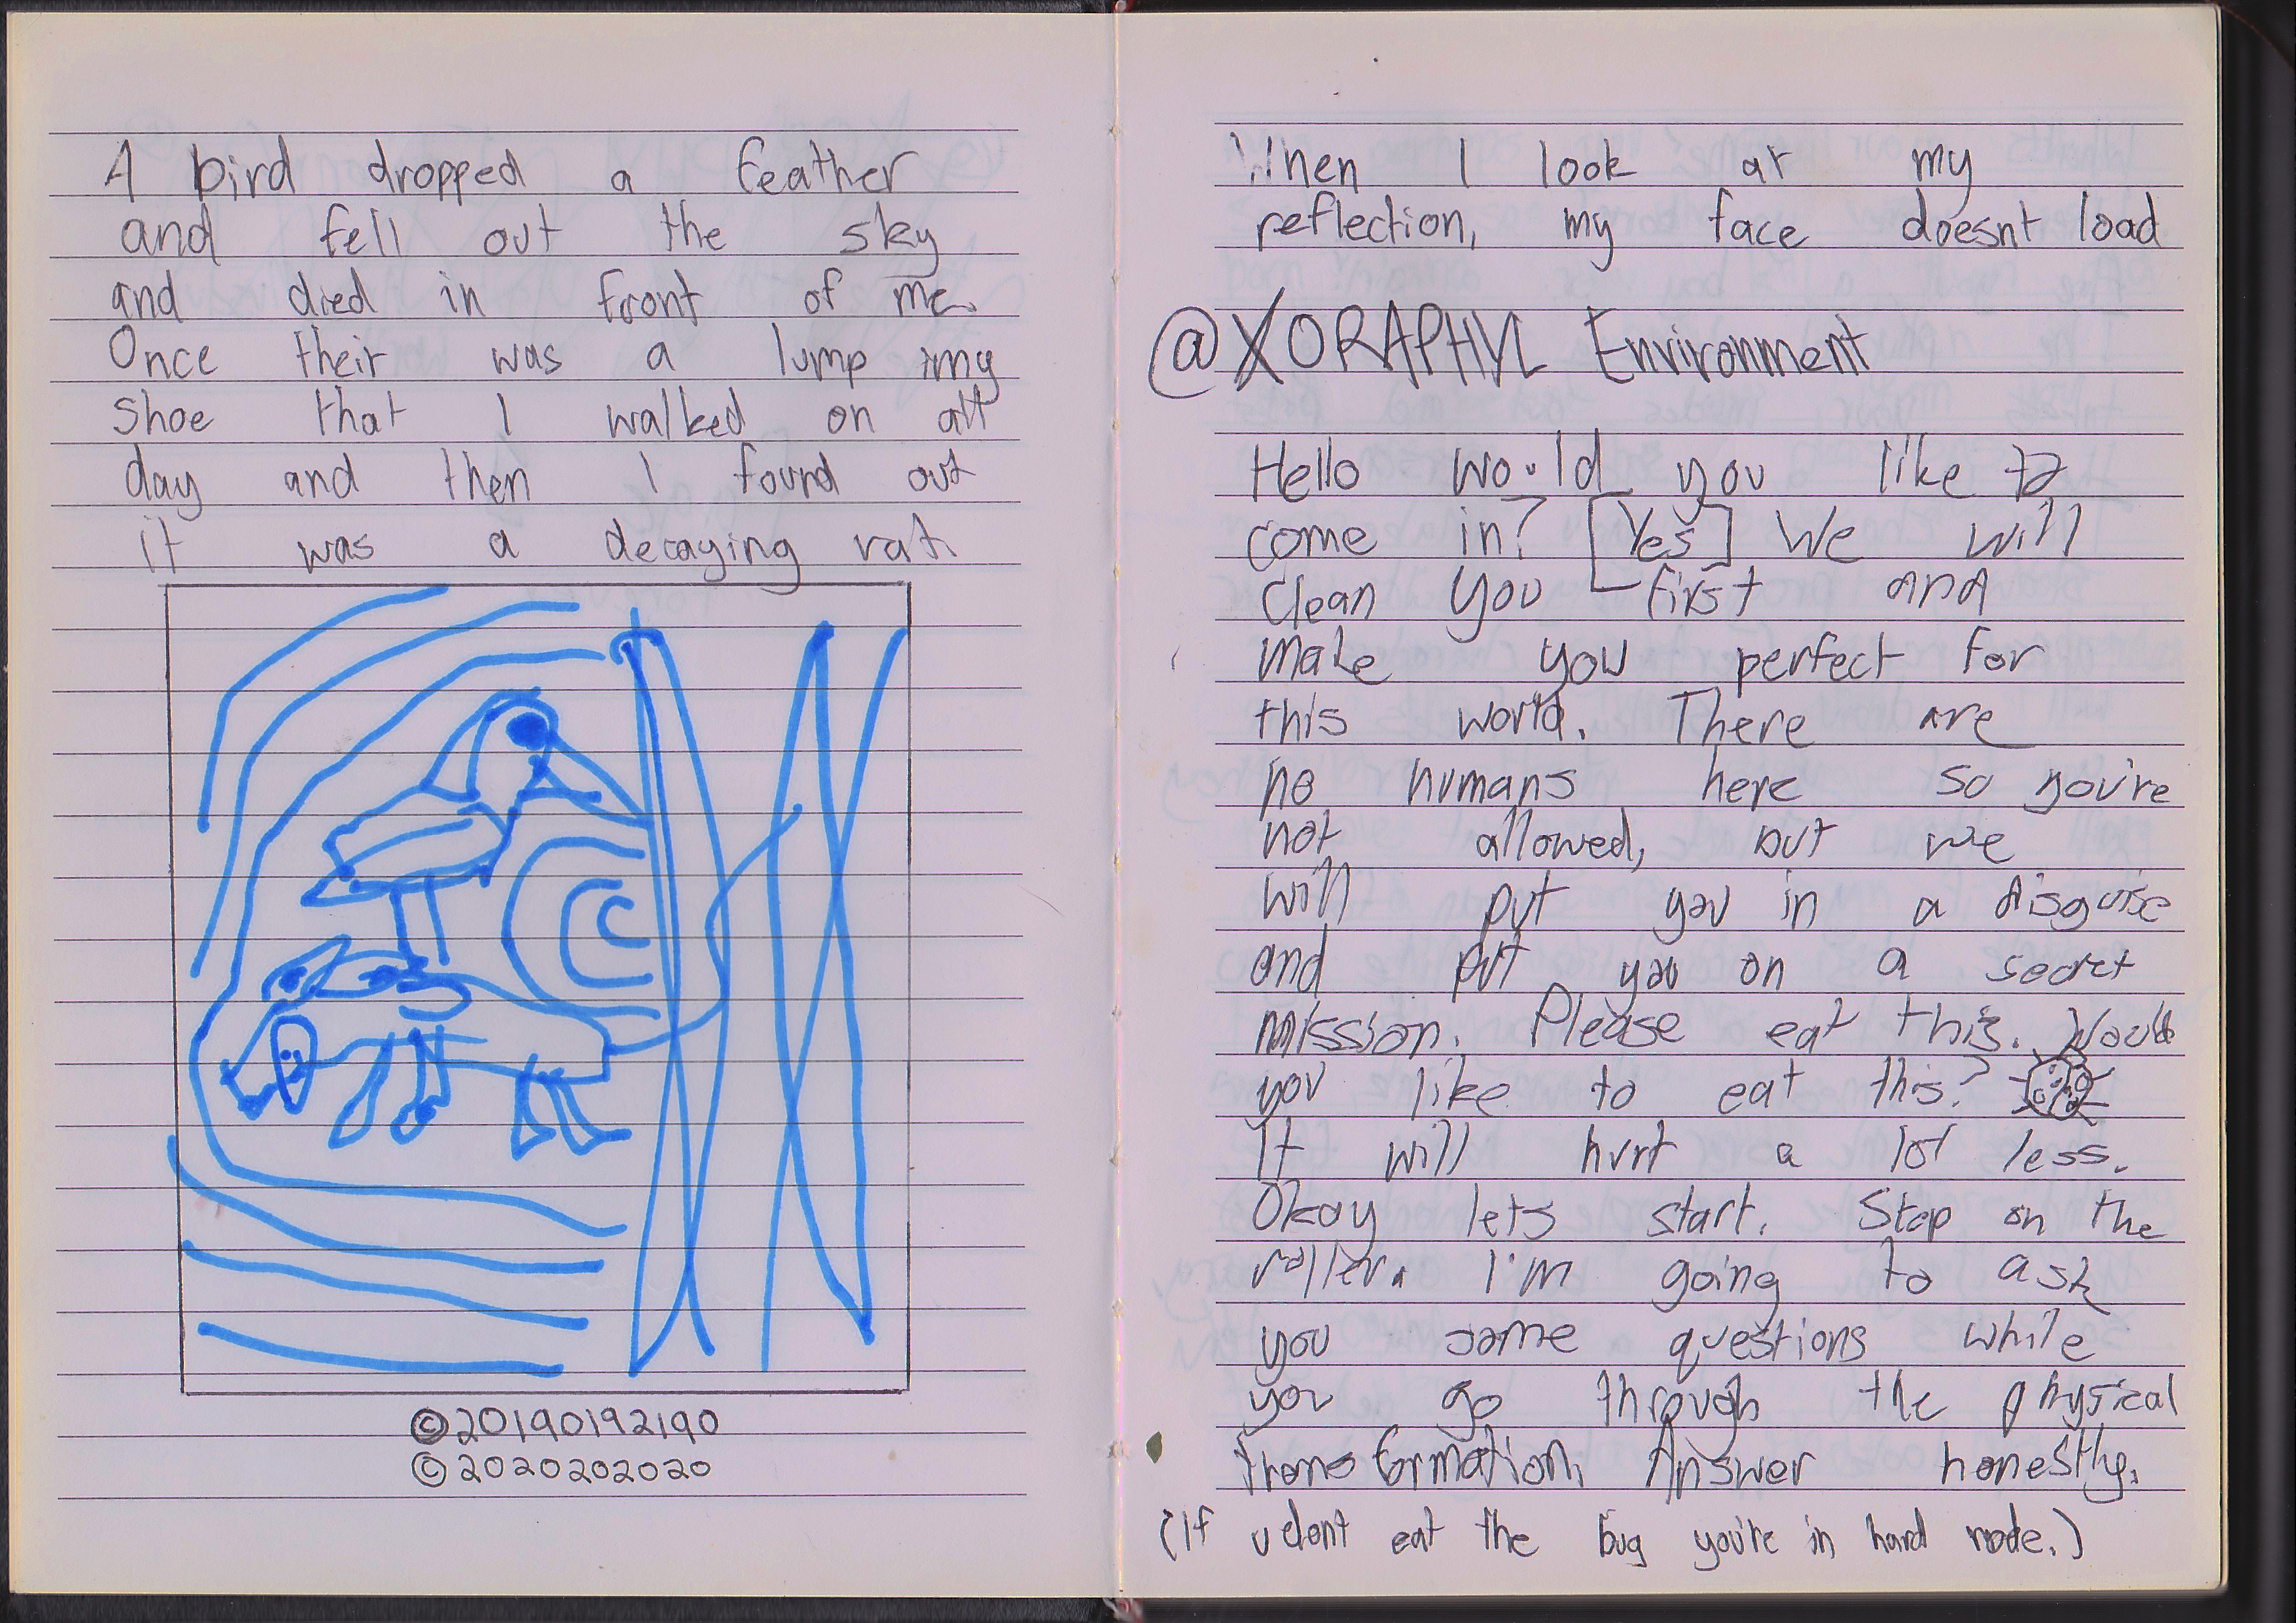 A bird dropped a feather
and fell out the sky
and died in front of me.
Once their was a lump imy
shoe that I walked on all
day and then I found out
it was a decaying rat.
©20190192190
©2020202020
When I look at my
reflection, my face doesnt load
@XORAPHYL Environment
Hello would you like to
come in? [Yes] We will
clean you first and
make you perfect for
this world. There are
no humans here so you're
not allowed, but we
will put you in a disguise
and put you on a secret
mission. Please eat this. Would
you like to eat this?
It will hurt a lot less.
Okay lets start. Step on the
roller. I'm going to ask
you some questions while
you go through the physical
transformation. Answer honestly.
(If u dont eat the bug you're in hard mode.)